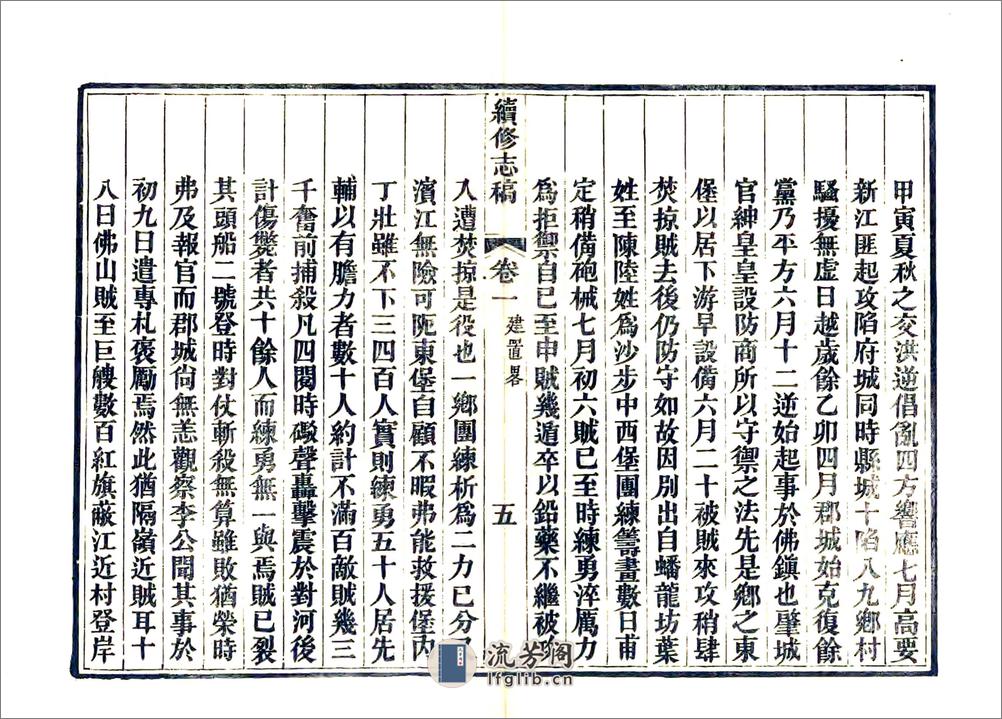 甲寅夏秋之交洪逆倡亂四方響應七月高要
新江匪起攻陷府城同時縣城十陷八九鄉村
騷擾無虛日越歲餘乙卯四月郡城始克復餘
黨乃平方六月十二逆始起事於佛鎮也肇城
官紳皇皇設防商所以守禦之法先是鄉之東
堡以居下游早設備六月二十被賊來攻稍肆
焚掠賊去後仍防守如故因別出自蟠龍坊葉
姓至陳陸姓為沙步中西堡團練籌畫數日甫
定稍備砲械七月初六賊已至時練勇淬厲力
為拒禦自巳至申賊幾遁卒以鉛藥不繼被
續修志稿
卷一
建置畧
五
入遭焚掠是役也一鄉團練析為二力已分
濱江無險可阨東堡自顧不暇弗能救援堡內
丁壯雖不下三四百人實則練勇五十人居先
輔以有膽力者數十人約計不滿百敵賊幾三
千奮前捕殺凡四閱時礮聲轟擊震於對河後
計傷斃者共十餘人而練勇無一與焉賊已裂
其頭船二號登時對仗斬殺無算雖敗猶榮時
弗及報官而郡城尙無恙觀察李公聞其事於
初九日遣專札褒勵焉然此猶隔嶺近賊耳十
八日佛山賊至巨艘數百紅旗蔽江近村登岸
流芳阁
lfglib.cn